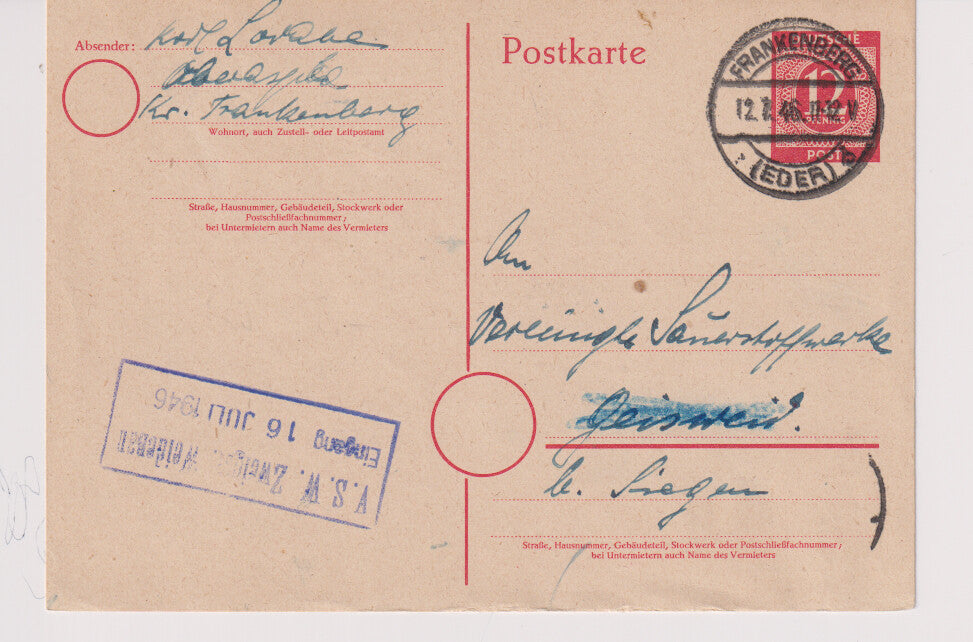 Absender: Karl
Kr. Frankenberg
Wohnort, auch Zustell- oder Leitpostamt
Straße, Hausnummer, Gebäudeteil, Stockwerk oder
Postschließfachnummer;
bei Untermietern auch Name des Vermieters
V.S.W. Weidenau
Eingang 16 JULI 1946
Postkarte
12
PFENNIG
POST
FRANKENBERG
12. 7. 46. 11-12 V
(EDER)
An
Vereinigte Sauerstoffwerke
Geisweid.
b. Siegen
Straße, Hausnummer, Gebäudeteil, Stockwerk oder Postschließfachnummer;
bei Untermietern auch Name des Vermieters